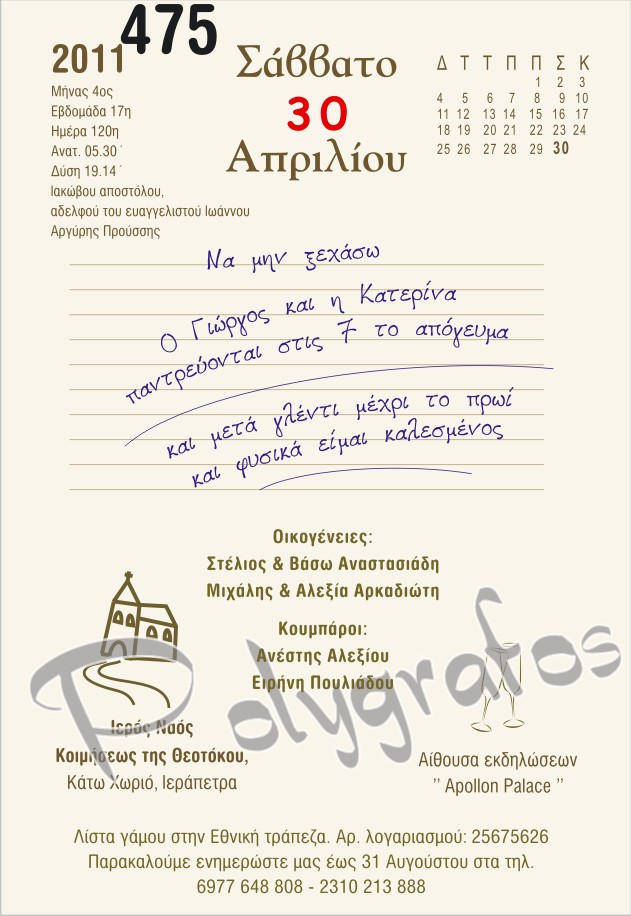 475
2011
Μήνας 4ος
Εβδομάδα 17η
Ημέρα 120η
Ανατ. 05.30΄
Δύση 19.14΄
Ιακώβου αποστόλου,
αδελφού του ευαγγελιστού Ιωάννου
Αργύρης Προύσσης
Σάββατο
30
Απριλίου
Δ Τ Τ Π Π Σ Κ
1 2 3
4 5 6 7 8 9 10
11 12 13 14 15 16 17
18 19 20 21 22 23 24
25 26 27 28 29 30
Να μην ξεχάσω
Ο Γιώργος και η Κατερίνα
παντρεύονται στις 7 το απόγευμα
και μετά γλέντι μέχρι το πρωί
και φυσικά είμαι καλεσμένος
Οικογένειες:
Στέλιος & Βάσω Αναστασιάδη
Μιχάλης & Αλεξία Αρκαδιώτη
Κουμπάροι:
Ανέστης Αλεξίου
Ειρήνη Πουλιάδου
Polygrafos
Ιερός Ναός
Κοιμήσεως της Θεοτόκου,
Κάτω Χωριό, Ιεράπετρα
Αίθουσα εκδηλώσεων
’’ Apollon Palace ’’
Λίστα γάμου στην Εθνική τράπεζα. Αρ. λογαριασμού: 25675626
Παρακαλούμε ενημερώστε μας έως 31 Αυγούστου στα τηλ.
6977 648 808 - 2310 213 888